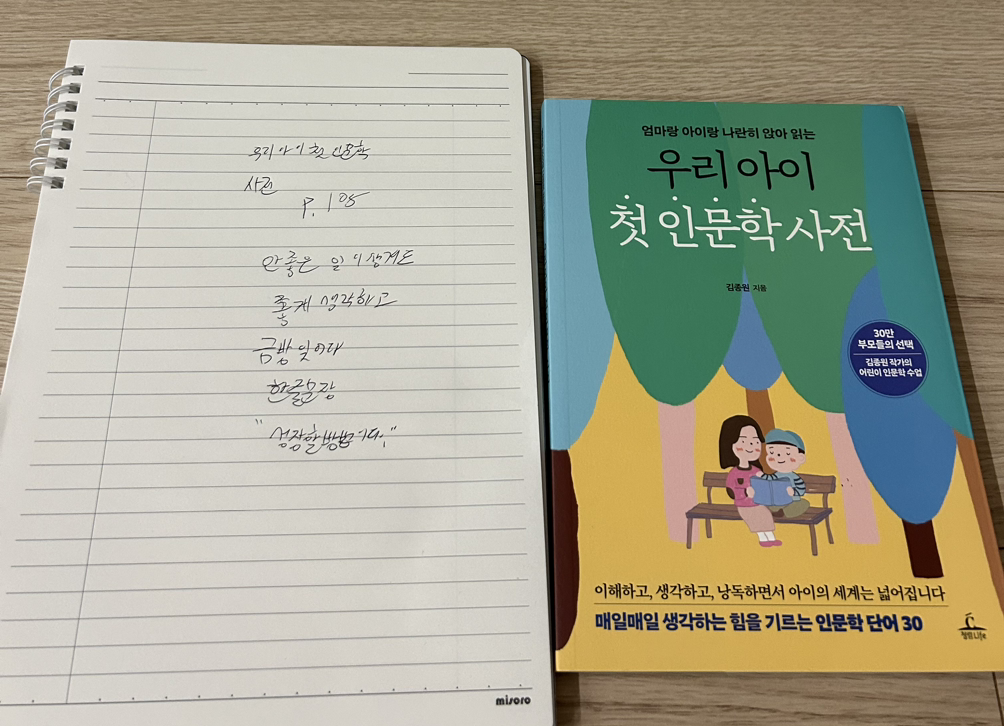 우리 아이 첫 인문학
사전
P. 105
안 좋은 일이 생겨도
좋게 생각하고
금방 잊어다
한줄문장
"성장할 방법이다."
misoro
엄마랑 아이랑 나란히 앉아 읽는
우리 아이
첫 인문학 사전
김종원 지음
30만
부모들의 선택
김종원 작가의
어린이 인문학 수업
이해하고, 생각하고, 낭독하면서 아이의 세계는 넓어집니다
매일매일 생각하는 힘을 기르는 인문학 단어 30
청림Life